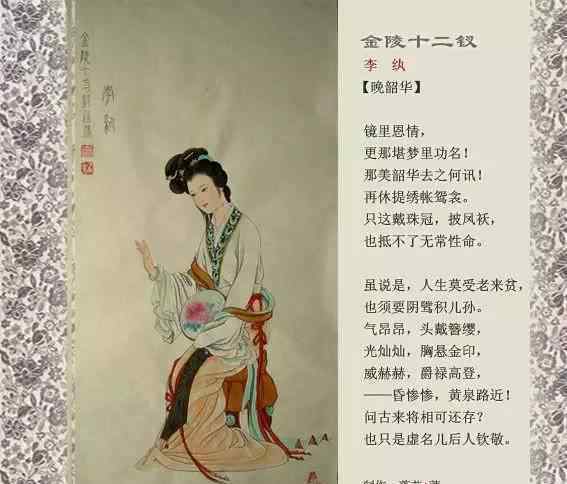 金陵十二钗
李 纨
【晚韶华】
镜里恩情，
更那堪梦里功名！
那美韶华去之何讯！
再休提绣帐鸳衾。
只这戴珠冠，披凤袄，
也抵不了无常性命。
虽说是，人生莫受老来贫，
也须要阴骘积儿孙。
气昂昂，头戴簪缨，
光灿灿，胸悬金印，
威赫赫，爵禄高登，
——昏惨惨，黄泉路近！
问古来将相可还存？
也只是虚名儿后人钦敬。
李纨